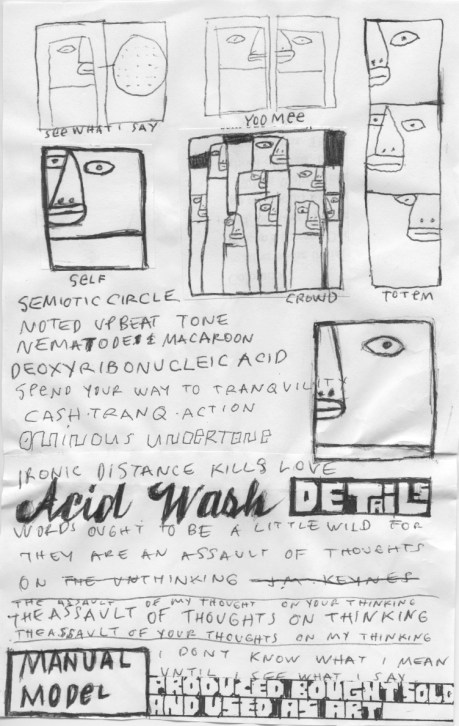 SEE WHAT I SAY
YOO MEE
SELF
CROWD
TOTEM
SEMIOTIC CIRCLE
NOTED UPBEAT TONE
NEMATODES & MACAROON
DEOXYRIBONUCLEIC ACID
SPEND YOUR WAY TO TRANQUILITY
CASH·TRANQ·ACTION
OMINOUS UNDERTONE
IRONIC DISTANCE KILLS LOVE
Acid Wash DETAILS
WORDS OUGHT TO BE A LITTLE WILD FOR
THEY ARE AN ASSAULT OF THOUGHTS
ON THE UNTHINKING J.M. KEYNES
THE ASSAULT OF MY THOUGHT ON YOUR THINKING
THE ASSAULT OF THOUGHTS ON THINKING
THE ASSAULT OF YOUR THOUGHTS ON MY THINKING
I DONT KNOW WHAT I MEAN
UNTIL I SEE WHAT I SAY.
MANUAL
MODEL
PRODUCED, BOUGHT, SOLD
AND USED AS ART